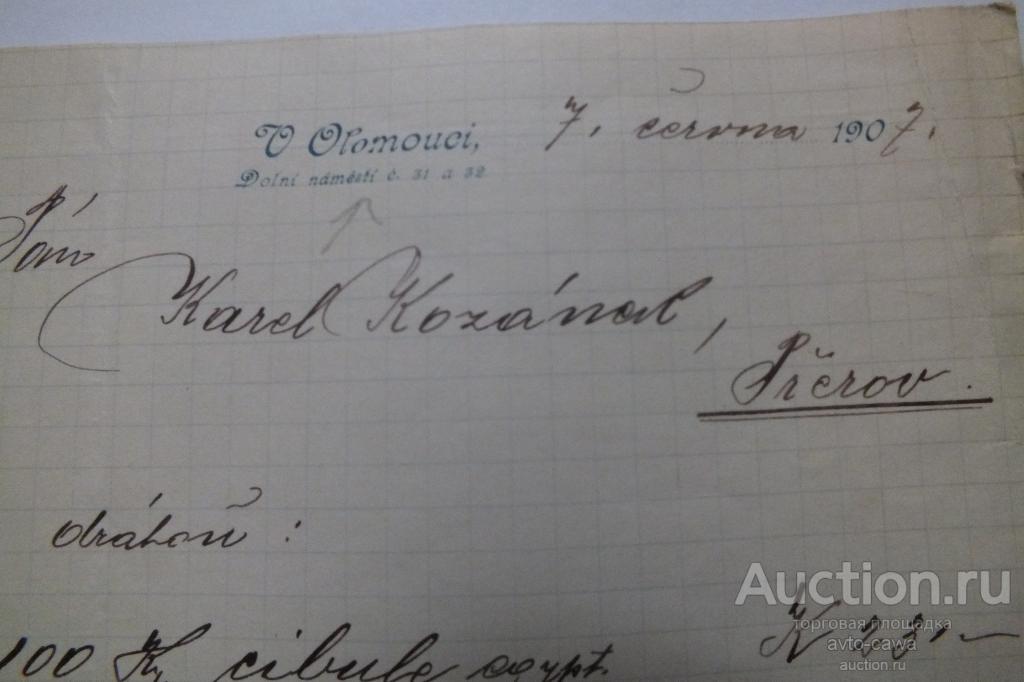 V Olomouci, 7. června 1907.
Dolní náměstí č. 31 a 32
Pán
Karel Kozánek,
Přerov.
dráhou:
100 Kg cibule egypt. K
Auction.ru
торговая площадка
avto-cawa
auction.ru